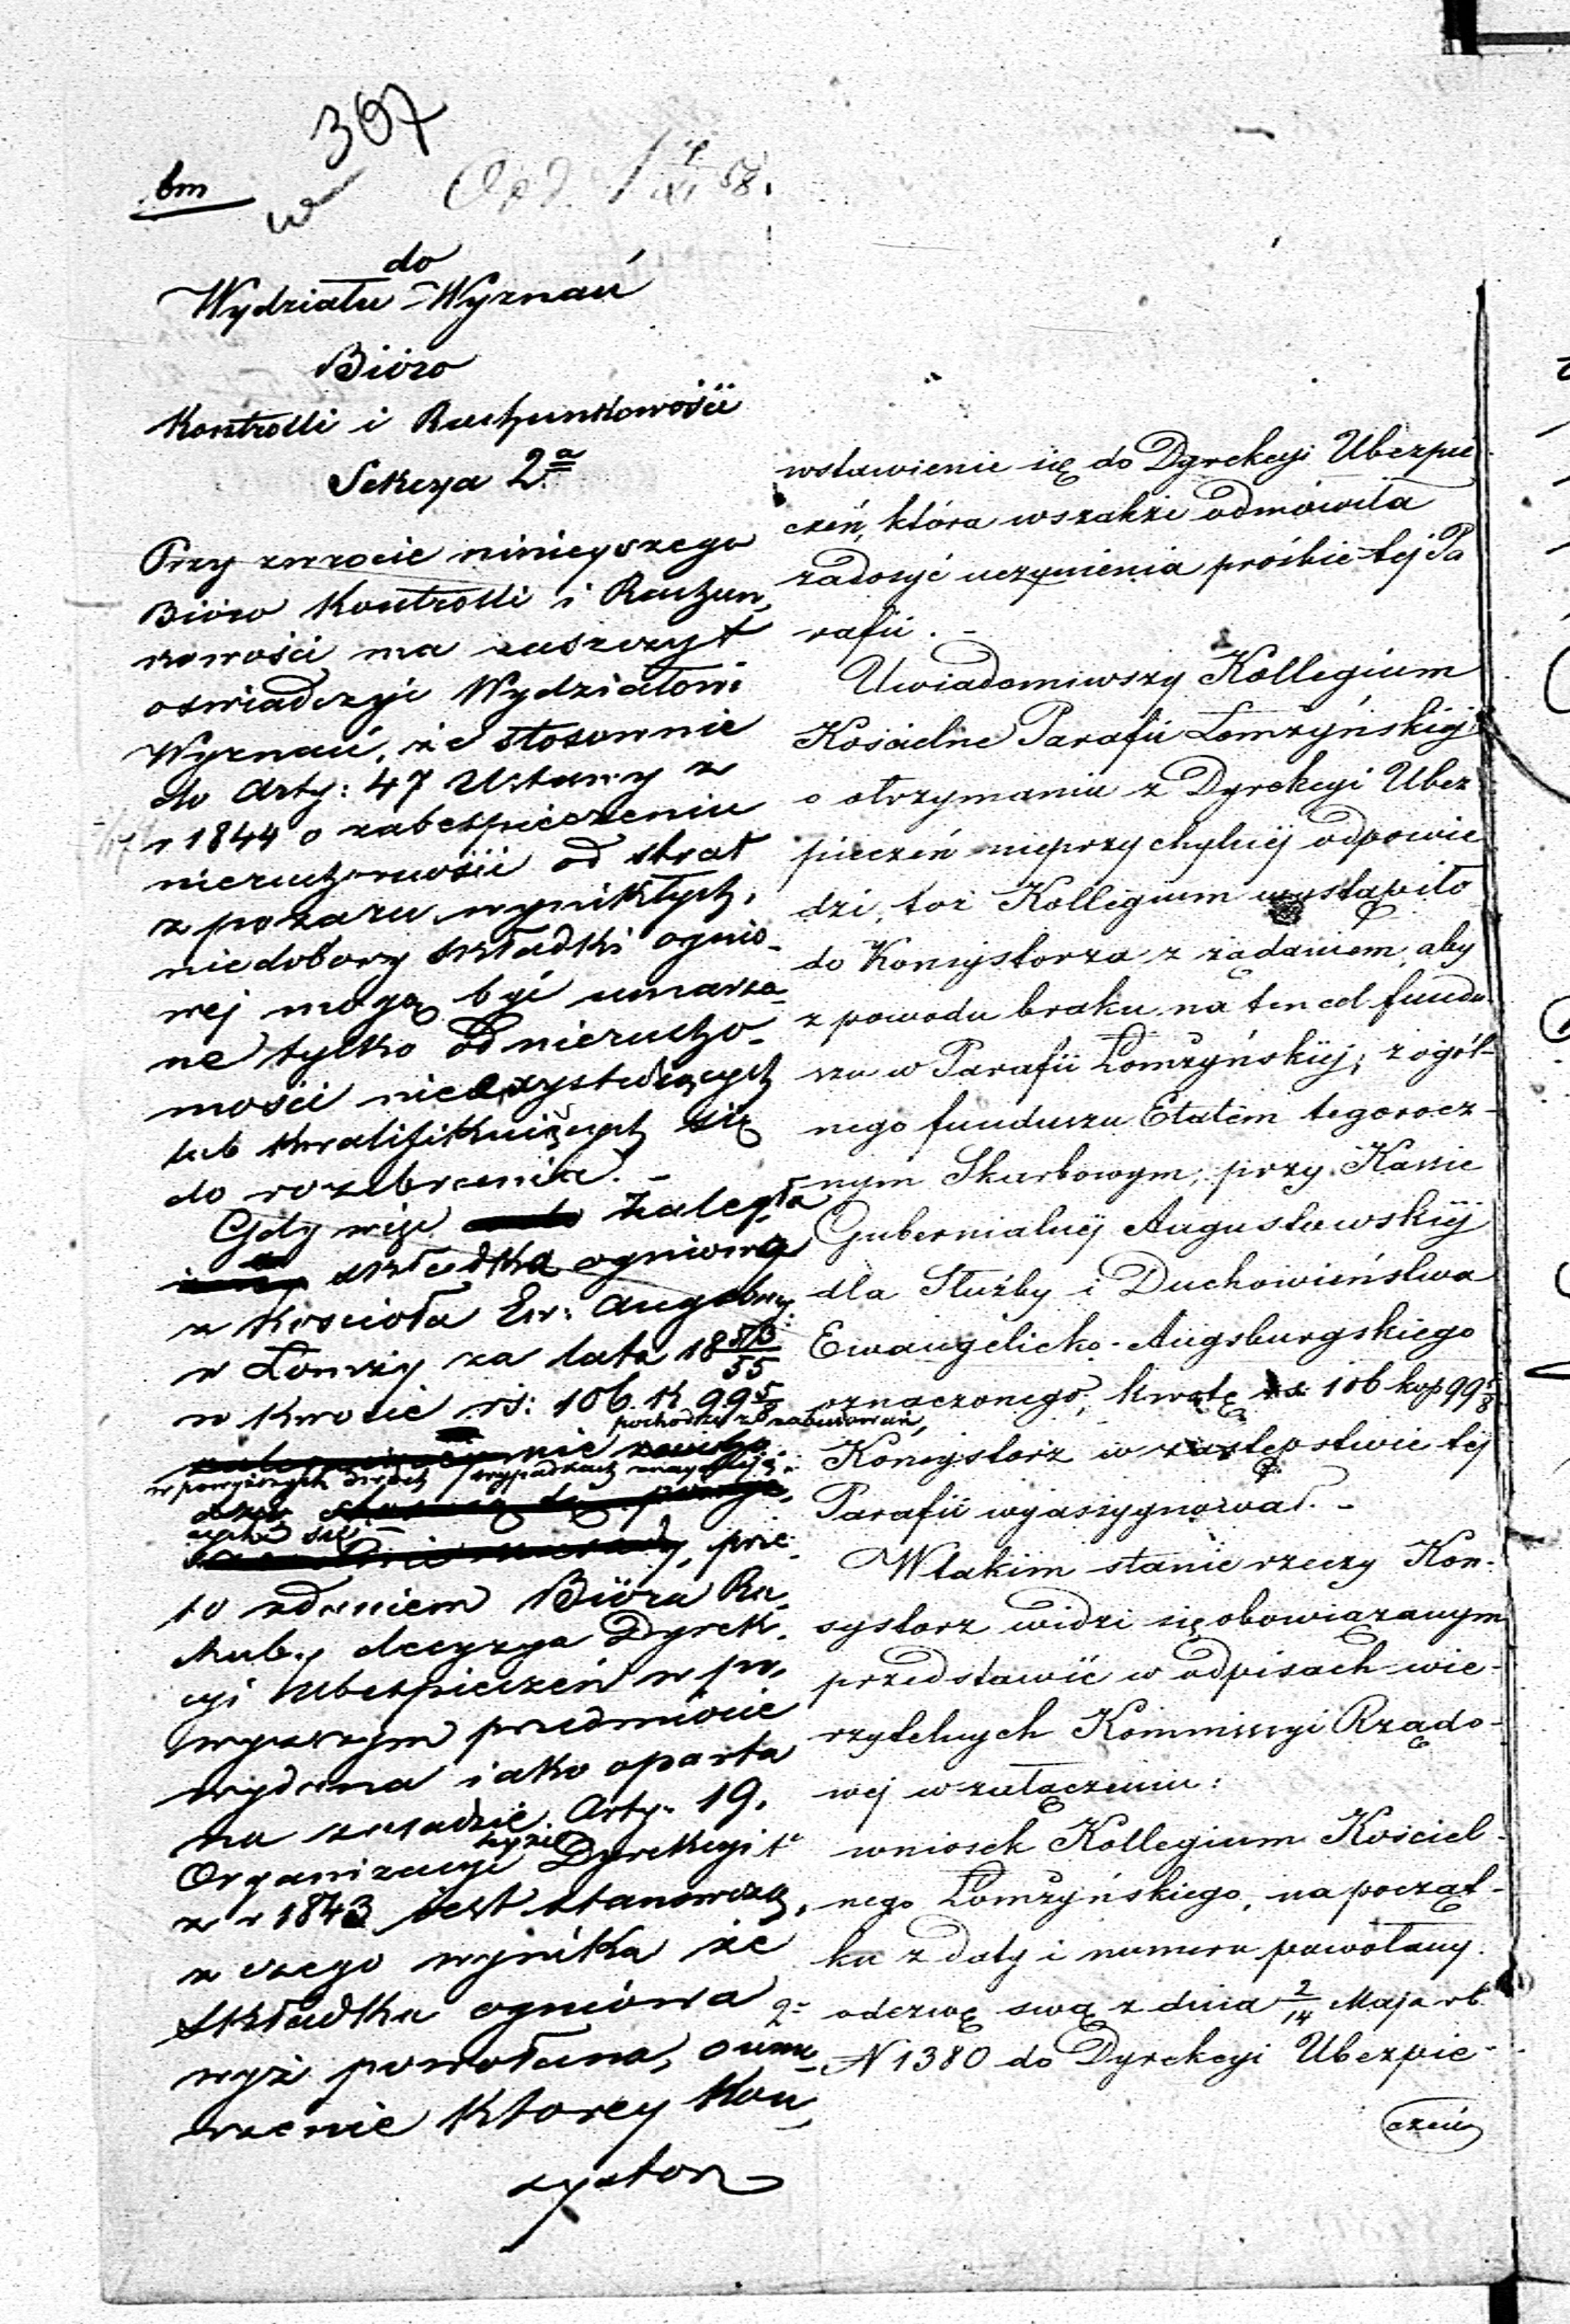 367
bm
w
do
Wydziału Wyznań
Bióro
Kontrolli i Rachunkowości
Sekcya 2a
Przy zwrocie niniejszego
Bióro Kontrolli i Rachun-
kowości ma zaszczyt
oswiadczyć Wydziałowi
Wyznań, że stosownie
do Arty: 47 Ustawy z
r 1844 o zabezpieczeniu
nieruchomości od strat
z pożaru wynikłych,
niedobory składki ognio-
wej mogą być umarza-
ne tylko od nierucho-
mości nieexystuiących
lub kwalifikuiących się
do rozebrania. -
Gdy więc zaległa
składka ogniowa
z Kościoła Ew: Augsburg:
w Łomży za lata 18 50/55
w kwocie rs: 106 k 99 5/8
nie pochodzi z zabudowań,
w powyższych dwóch wypadkach znayduią-
cych się, prze-
to zdaniem Bióra Ra-
chub., decyzya Dyrek-
cyi Ubezpieczeń w po-
wyższym przedmiocie
wydana iako oparta
na zasadzie Arty. 19.
Organizacyi tejże Dyrekcyi
z r 1843 jest stanowczą,
z czego wynika że
składka ogniowa
wyż powołana, o uma-
rzenie którey Kon-
systorz
wstawienie się do Dyrekcyi Ubezpie-
czeń, która wszakże odmówiła
zadosyć uczynienia prośbie tej Pa
rafii. -
Uwiadomiwszy Kollegium
Kościelne Parafii Łomżyńskiej
o otrzymaniu z Dyrekcyi Ubez
pieczeń nieprzychylnej odpowie
dzi, toż Kollegium wystąpiło
do Konsystorza z żądaniem, aby
z powodu braku na ten cel fundu-
szu w Parafii Łomżyńskiej, z ogól-
nego funduszu Etatem tegorocz-
nym Skarbowym, przy Kassie
Gubernialnej Augustowskiej
dla Służby i Duchowieństwa
Ewangelicko-Augsburgskiego
oznaczonego, kwotę rs: 106 kop 99 5/8
Konsystorz w zastępstwie tej
Parafii wyassygnował. -
W takim stanie rzeczy Kon-
systorz widzi się obowiązanym
przedstawić w odpisach wie-
rzytelnych Kommissyi Rządo-
wej w załączeniu:
wniosek Kollegium Kościel-
nego Łomżyńskiego, na począt-
ku z daty i numeru powołany.
2= odezwę swą z dnia 2/14 Maja rb.
N 1380 do Dyrekcyi Ubezpie-
czeń